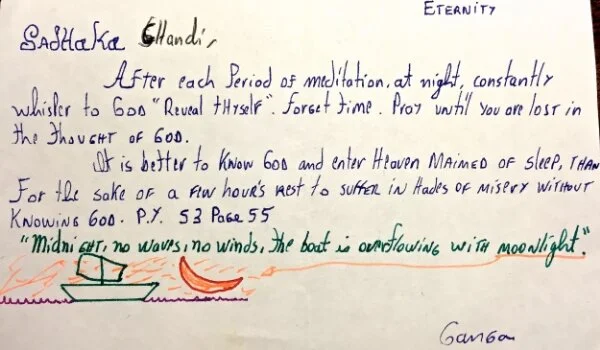 ETERNITY
SADHAKA CHandi,
AFter each Period of meditation, at night, constantly
whisper to GOD "Reveal tHyself". Forget time. Pray until you are lost in
the thought of GOD.
It is better to Know GOD and enter Heaven MAIMED OF SLeep, THAN
For the sake of a few hour's rest to suffer in Hades of misery without
KNOWING GOD. P.Y. 53 Page 55
"Midnight, no waves, no winds, the boat is overflowing with moonlight."
Ganga